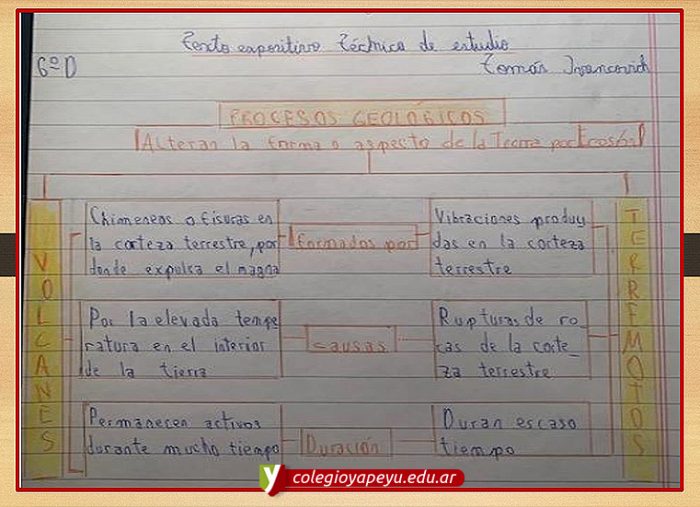 Texto expositivo Técnica de estudio
6º D
Tomás Ivancovich
PROCESOS GEOLÓGICOS
Alteran la forma o aspecto de la Tierra por
VOLCANES
Chimeneas o fisuras en
la corteza terrestre, por
donde expulsa el magna
formados por
Vibraciones produy
das en la corteza
terrestre
TERREMOTOS
Por la elevada tempe
ratura en el interior
de la tierra
causas
Rupturas de ro
cas de la corte_
za terrestre
Permanecen activos
durante mucho tiempo
Duración
Duran escaso
tiempo
y colegioyapeyu.edu.ar